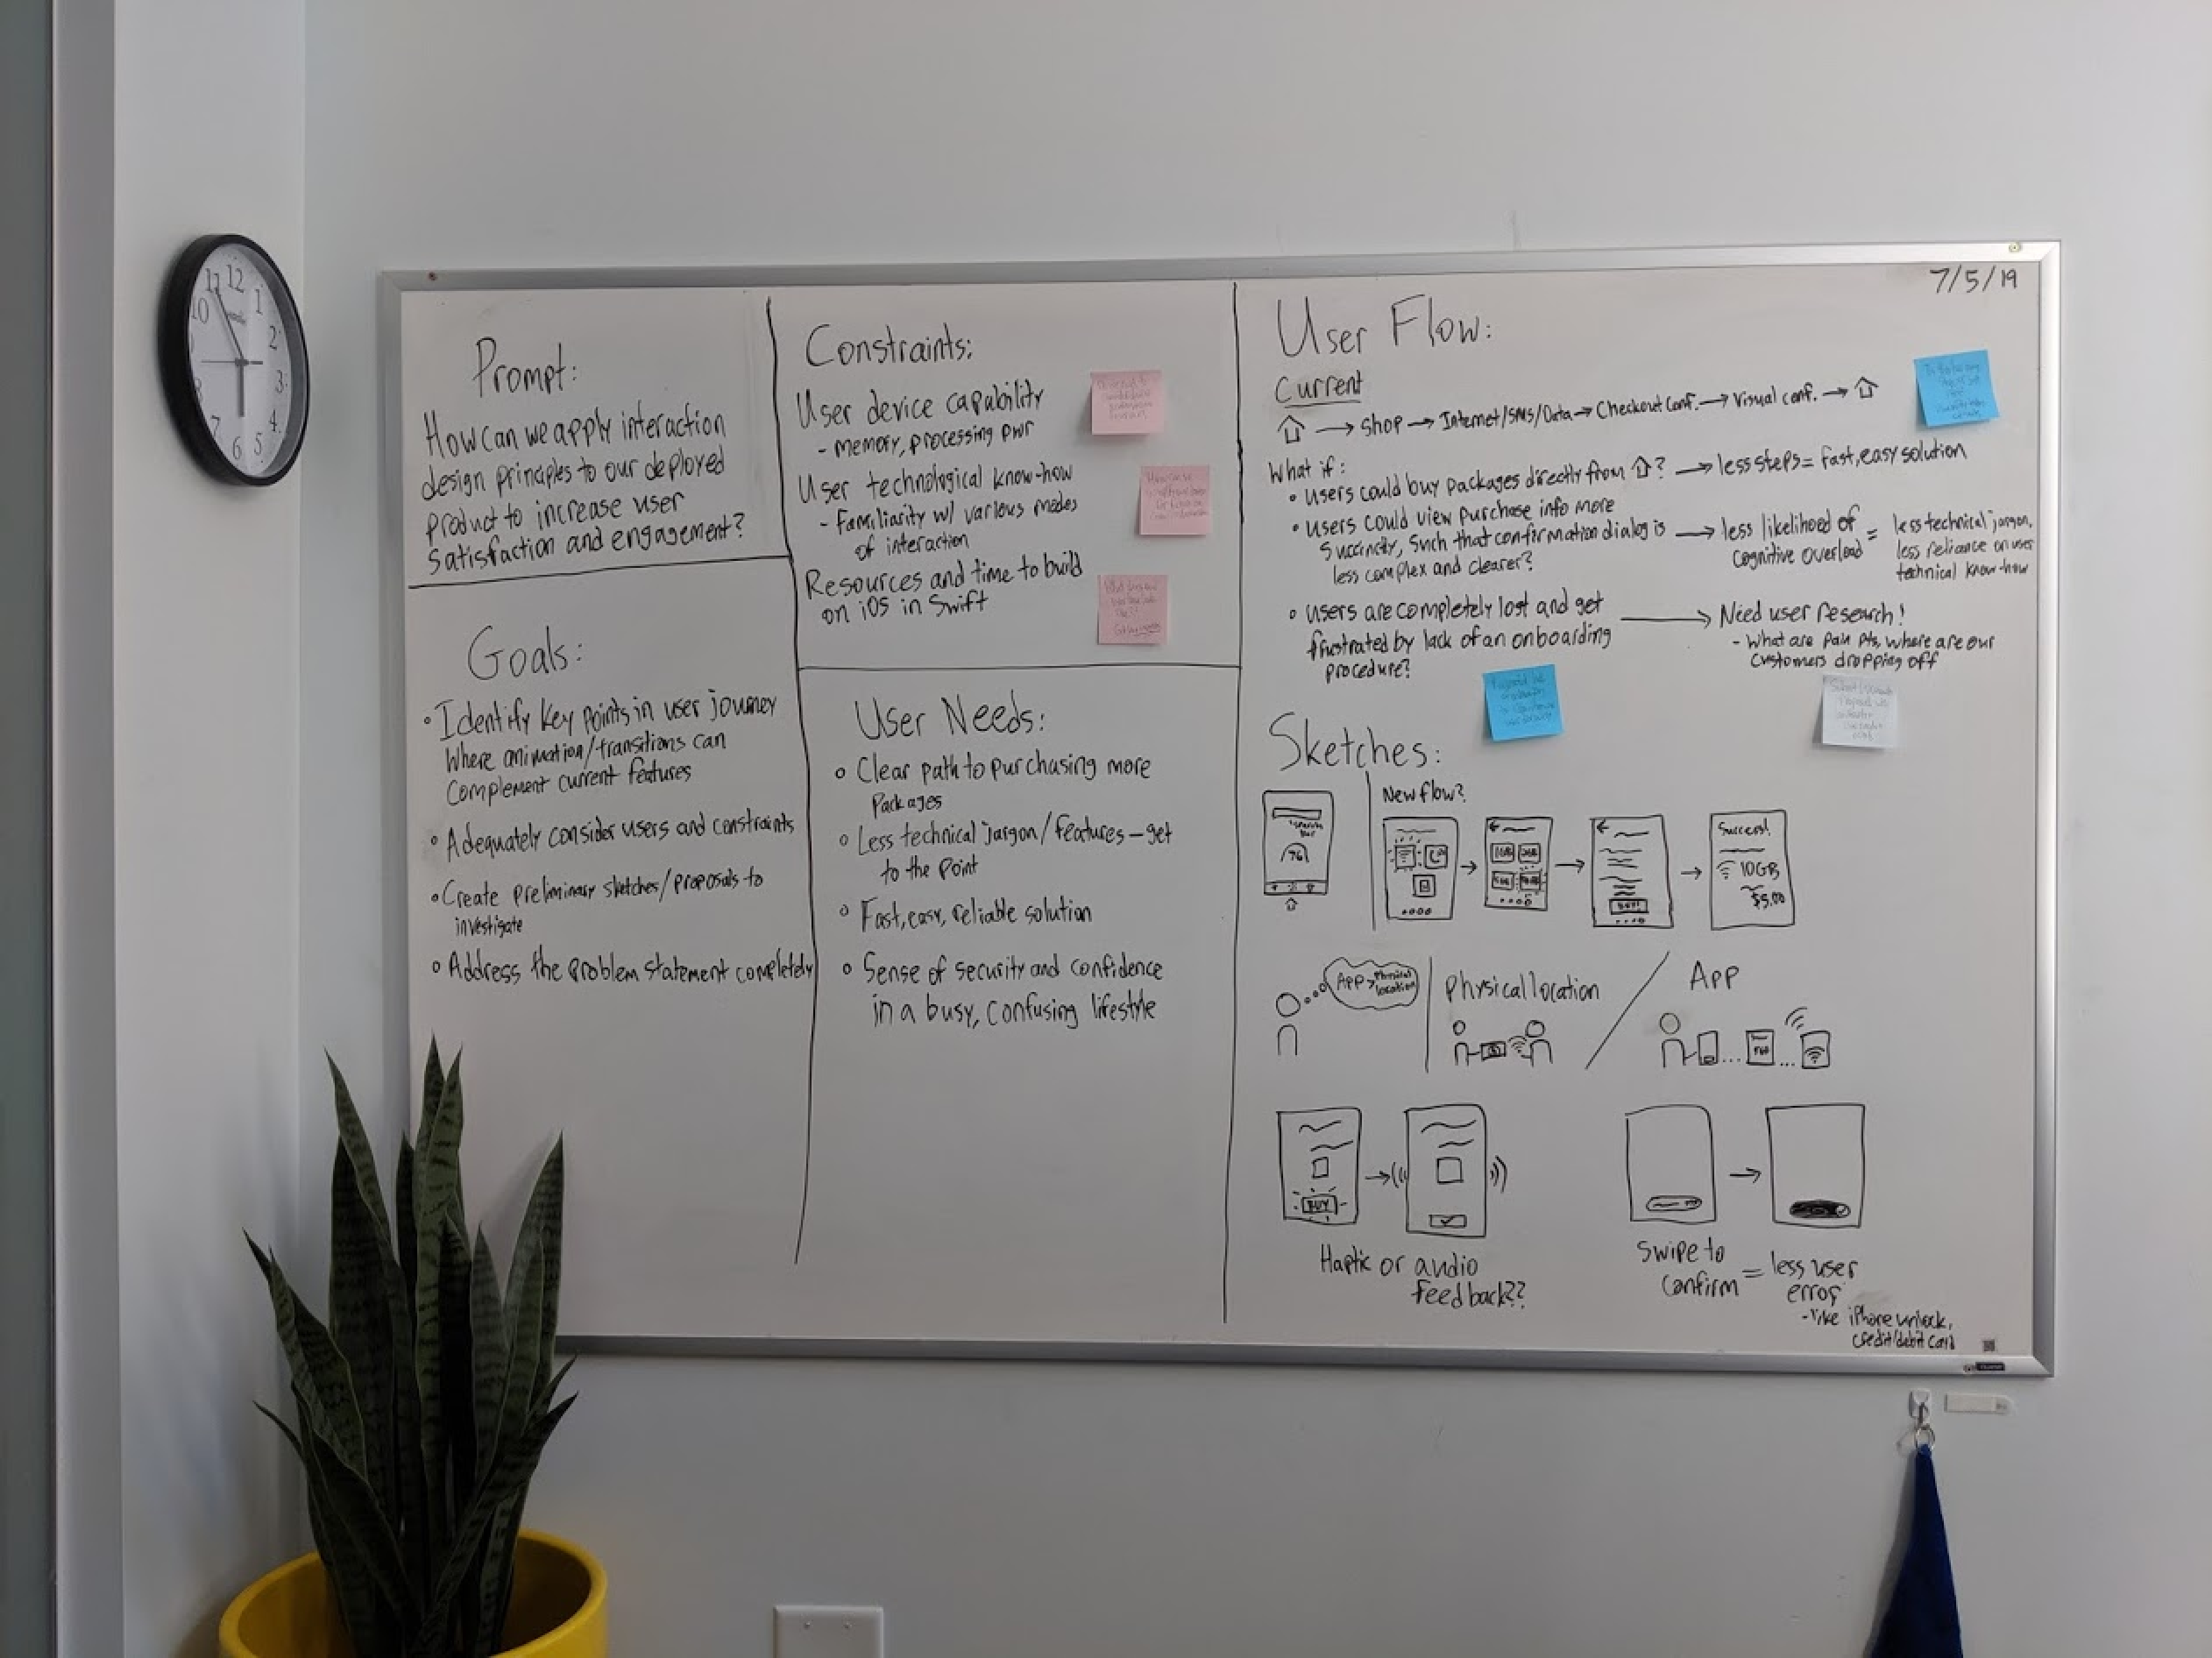 12
11
1
10
2
3
4
8
7
6
5
7/5/19
Prompt:
How can we apply interaction
design principles to our deployed
product to increase user
satisfaction and engagement?
Goals:
• Identify key points in user journey
where animation/transitions can
complement current features
• Adequately consider users and constraints
• Create preliminary sketches/proposals to
investigate
• Address the problem statement completely
Constraints:
User device capability
- memory, processing pwr
User technological know-how
- Familiarity w/ various modes
of interaction
Resources and time to build
on iOS in Swift
User Needs:
• Clear path to purchasing more
packages
• Less technical jargon/features - get
to the point
• Fast, easy, reliable solution
• Sense of security and confidence
in a busy, confusing lifestyle
User Flow:
Current
→ Shop → Internet/SMS/Data → Checkout Conf. → Visual conf. →
What if:
• Users could buy packages directly from ? → less steps = fast, easy solution
• Users could view purchase info more
succinctly, such that confirmation dialog is
less complex and clearer?
→ less likelihood of
cognitive overload
= less technical jargon,
less reliance on user
technical know-how
• Users are completely lost and get
frustrated by lack of an onboarding
procedure?
→ Need user research!
- What are pain pts, where are our
customers dropping off
Sketches:
New flow?
Success!
10GB
$5.00
App > Physical
location
Physical location
App
BUY
Haptic or audio
feedback??
Swipe to
confirm
= less user
error
- like iPhone unlock,
credit/debit card